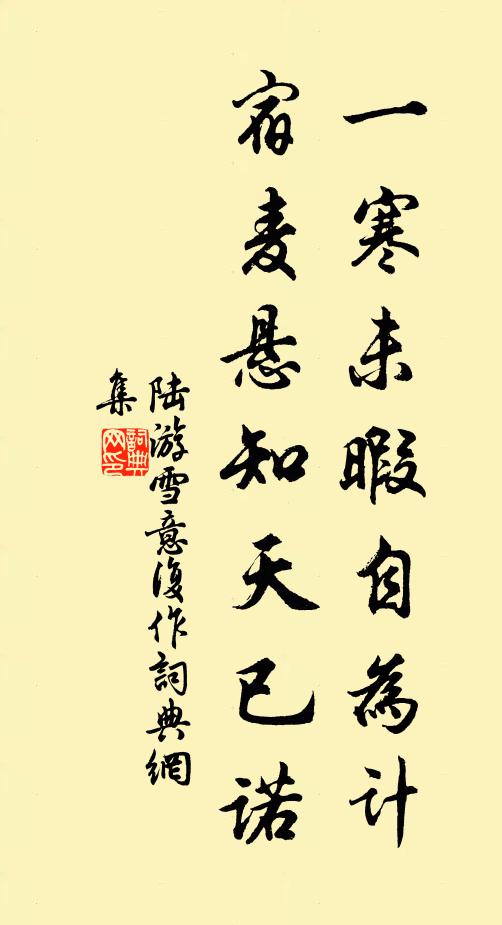 一寒未暇自為计
宿麦悬知天已诺
陆游雪意復作詞典網
集
詞典网印